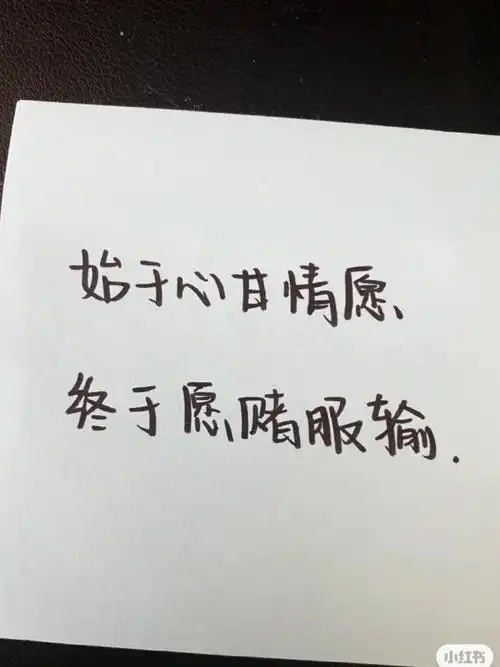 始于心甘情愿、
终于愿赌服输.
小红书